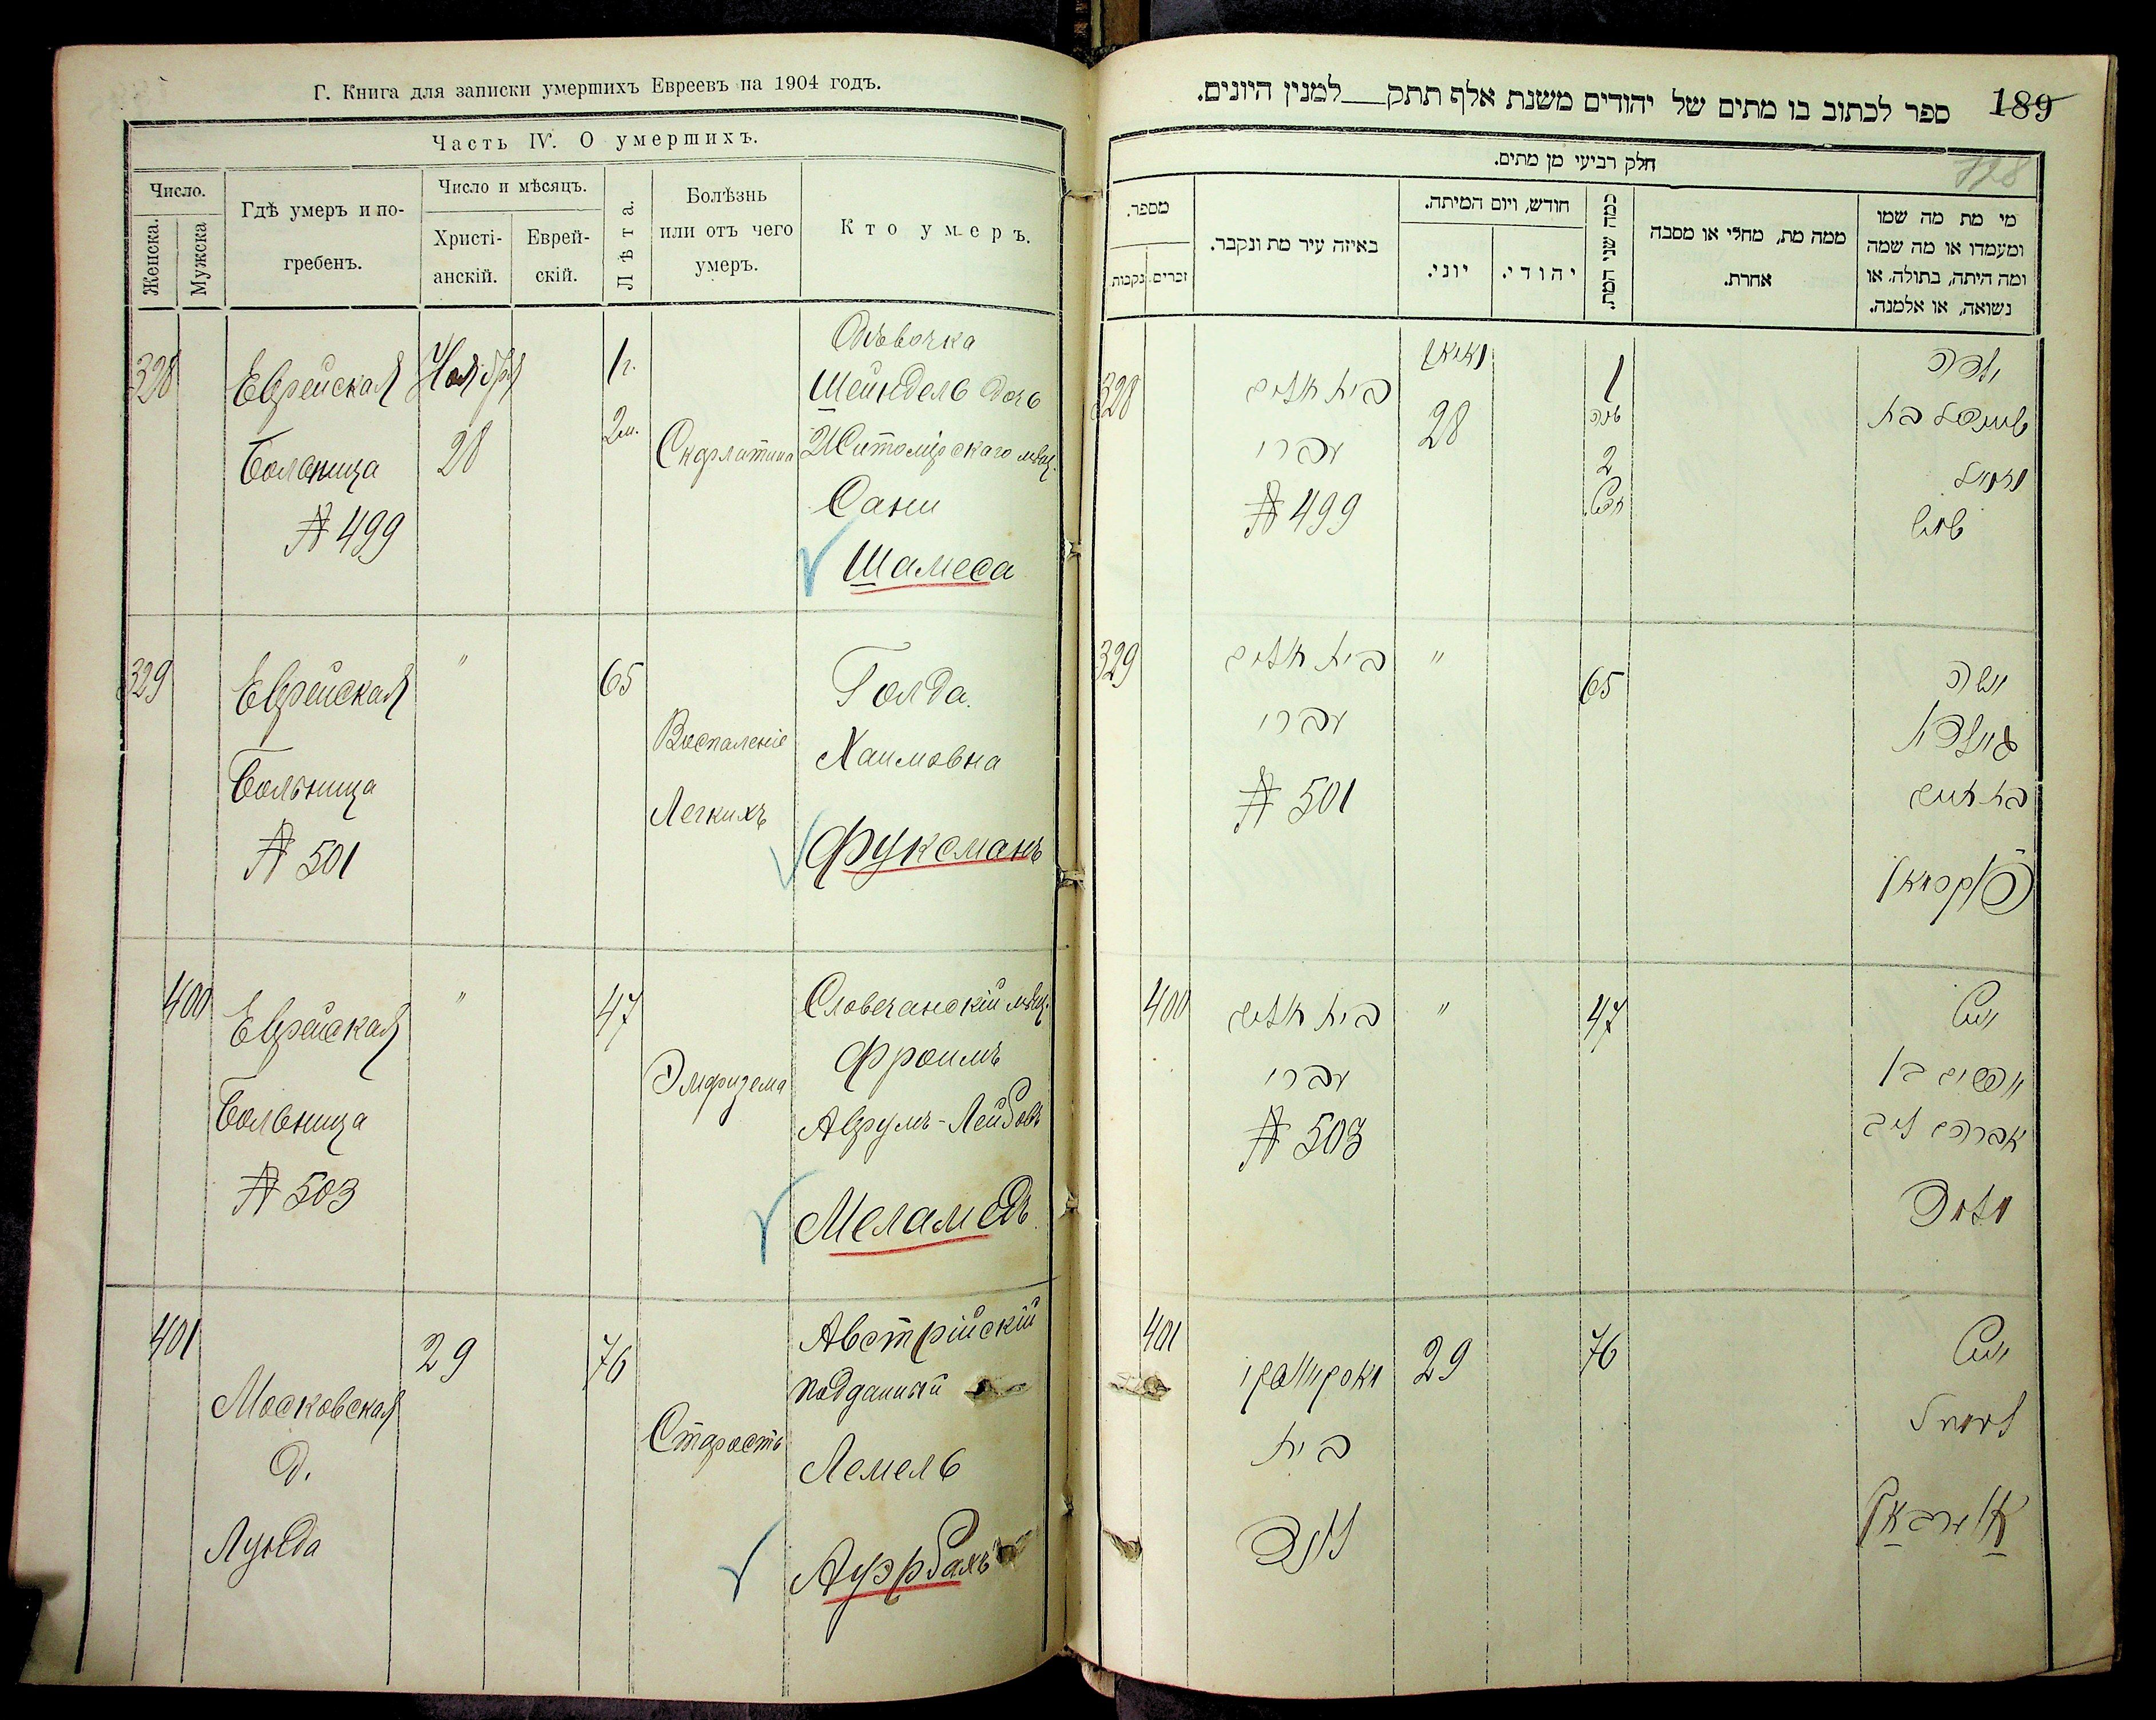 Г. Книга для записки умершихъ Евреевъ на 1904 годъ.
Часть IV. О умершихъ.
Число.
Женска.
Мужска
Гдѣ умеръ и по-
гребенъ.
Число и мѣсяцъ.
Христі-
анскій.
Еврей-
скій.
Лѣта.
Болѣзнь
или отъ чего
умеръ.
Кто умеръ.
328
Еврейская
Больница
№ 499
Ноября
28
1 г.
2 м.
Скарлатина
Дѣвочка
Шейндель дочь
Житомірскаго мѣщ.
Сани
Шамеса
329
Еврейская
Больница
№ 501
"
65
Воспаленіе
Легкихъ
Голда
Хаимовна
Фуксманъ
400
Еврейская
Больница
№ 503
"
47
Эмфизема
Словечанскій мѣщ.
Фроимъ
Аврумъ-Лейбовъ
Меламедъ
401
Московская
д.
Лунда
29
76
Старость
Австрійскій
подданный
Лемель
Ауэрбахъ
189
ספר לכתוב בו מתים של יהודים משנת אלף תתק__למנין היונים.
חלק רביעי מן מתים.
מספר.
נקבות
זכרים.
באיזה עיר מת ונקבר.
חודש, ויום המיתה.
יוני.
יהודי.
כמה שני המת.
ממה מת, מחלי או מסבה
אחרת.
מי מת מה שמו
ומעמדו או מה שמה
ומה היתה, בתולה, או
נשואה, או אלמנה.
328
בית חולים
עברי
№ 499
28
1
שנה
2
חדש
ילדה
שיינדל בת
329
בית חולים
עברי
№ 501
"
65
אשה
גאלדא
בת חיים
פוקסמאן
400
בית חולים
עברי
№ 503
"
47
איש
אפרים בן
אברהם ליב
מלמד
401
מאסקאווסקי
בית
לונדא
29
76
איש
לעמיל
אוערבאך